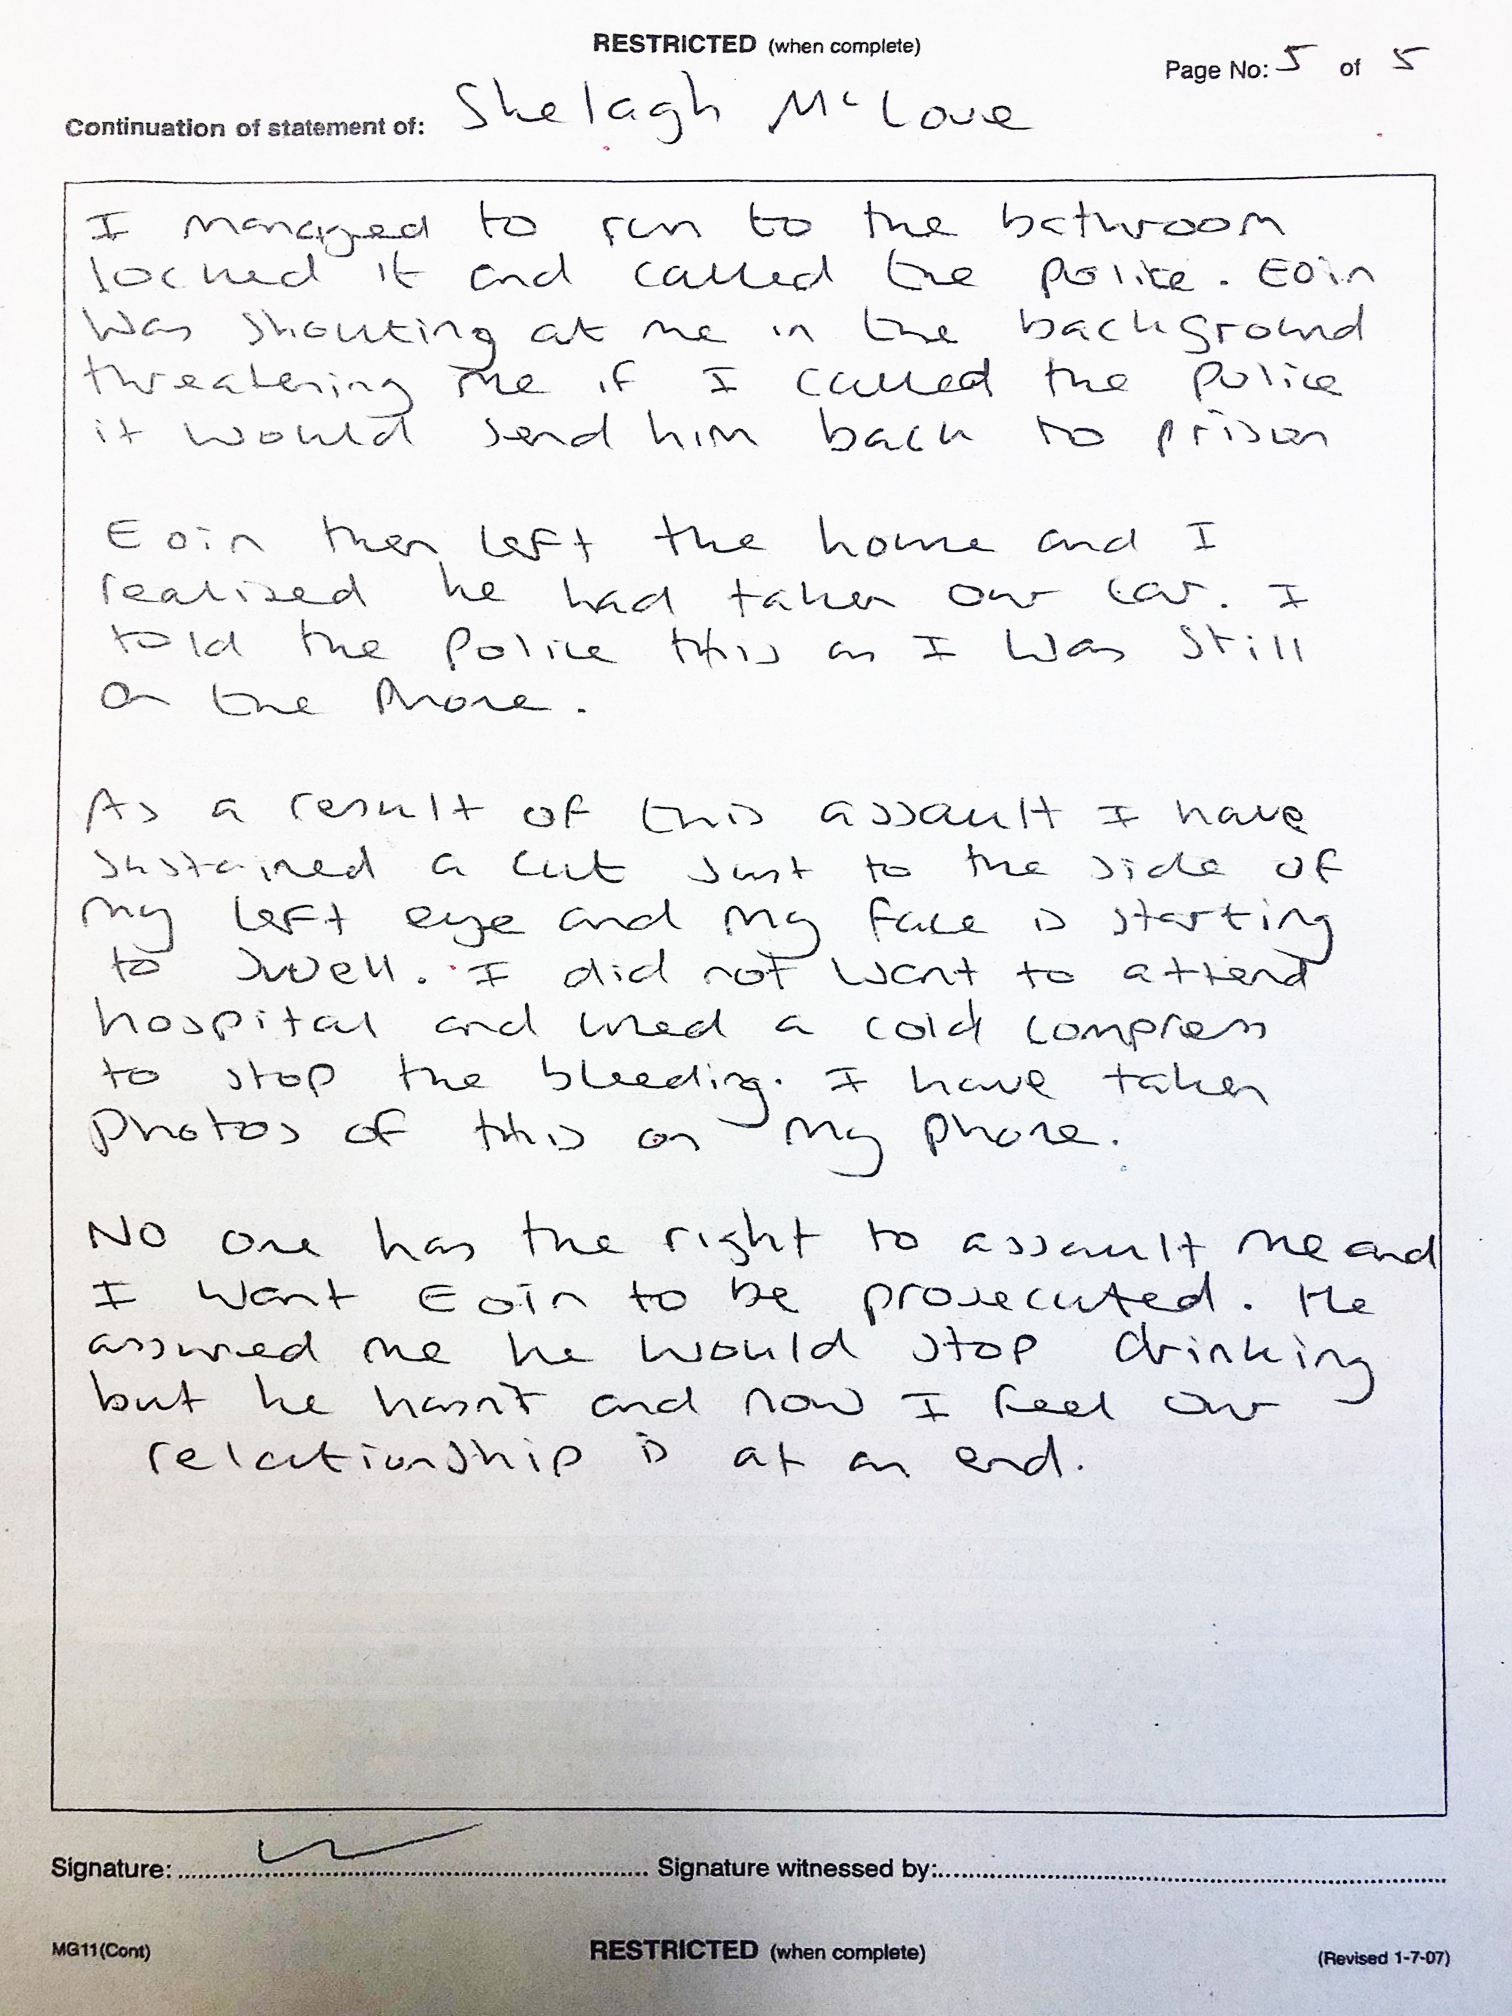 RESTRICTED (when complete)
Page No: 5 of 5
Continuation of statement of: Shelagh McLove
I managed to run to the bathroom
locked it and called the police. Eoin
was shouting at me in the background
threatening me if I called the police
it would send him back to prison
Eoin then left the home and I
realised he had taken our car. I
told the police this as I was still
on the phone.
As a result of this assault I have
sustained a cut just to the side of
my left eye and my face is starting
to swell. I did not want to attend
hospital and used a cold compress
to stop the bleeding. I have taken
photos of this on my phone.
No one has the right to assault me and
I want Eoin to be prosecuted. He
assured me he would stop drinking
but he hasn't and now I feel our
relationship is at an end.
Signature: Signature witnessed by:
MG11(Cont) RESTRICTED (when complete) (Revised 1-7-07)